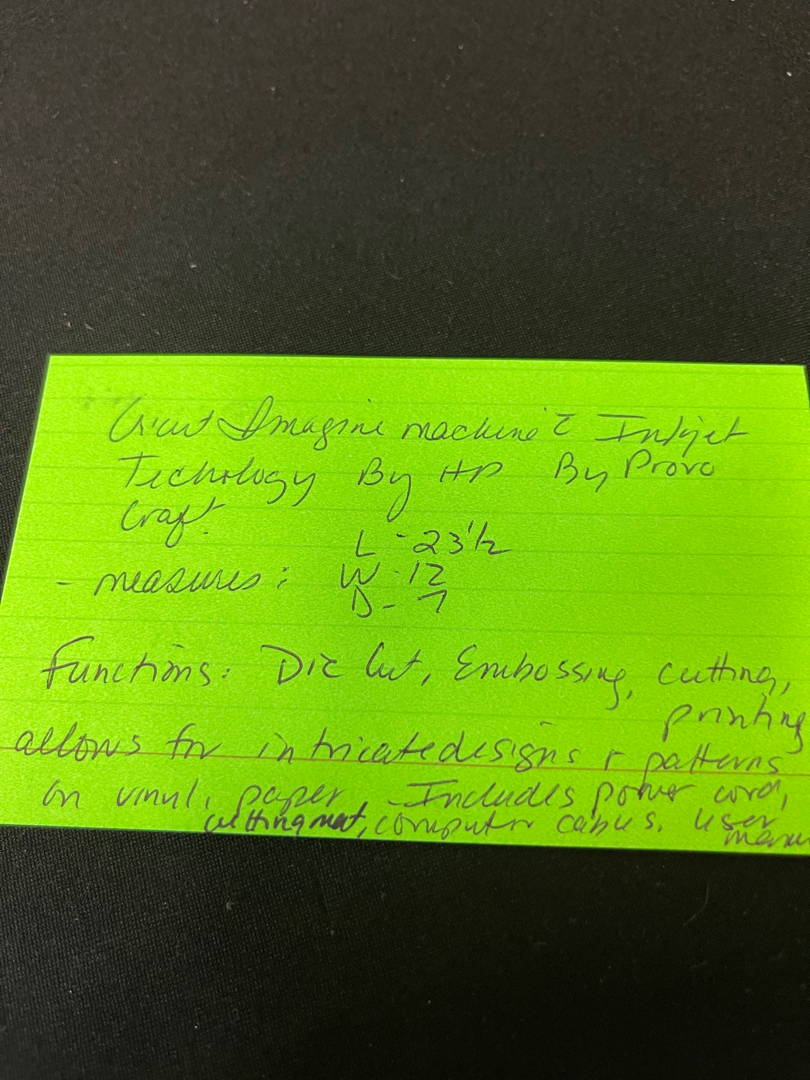 Cricut Imagine machine c̄ Inkjet
Techology By HP By Provo
Craft.
L - 23 1/2
- measures: W - 12
D - 7
Functions: Die Cut, Embossing, cutting,
printing
allows for intricate designs + patterns
on vinyl, paper - Includes power cord,
cutting mat, computer cables, user
manu